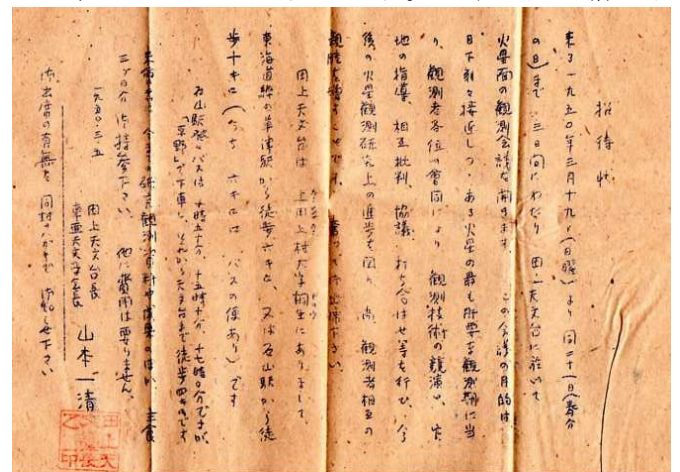 招待状
来る一九五〇年三月十九日(日曜)より同二十一日(春分
の日)まで 三日間にわたり 田上天文台に於いて
火星面の観測会議を開きます。 この会議の目的は
目下刻々接近しつゝある火星の最も肝要な観測期に当
り、観測者各位の会同により 観測技術の競演や、実
地の指導、相互批判、協議、打ち合はせ等を行ひ、今
後の火星観測研究上の進歩を図り、尚、観測者相互の
親睦を増すことです。奮って御出席下さい。
田上天文台は 上田上村大字桐生にありまして
東海道線の草津駅から徒歩六キロ、又は石山駅から徒
歩十キロ(うち六キロは バスの便あり)です
石山駅発のバスは 十時五十分、十五時十分、十七時〇分ですが、
「平野」で下車し、それから天文台まで徒歩四キロです
来会者は 今までの観測資料や 主食
三日分 御持参下さい。 他に費用は要りません。
一九五〇・三・五
田上天文台長
東亜天文学会長 山本一清
御出席の有無を 同封のハガキで 御知らせ下さい